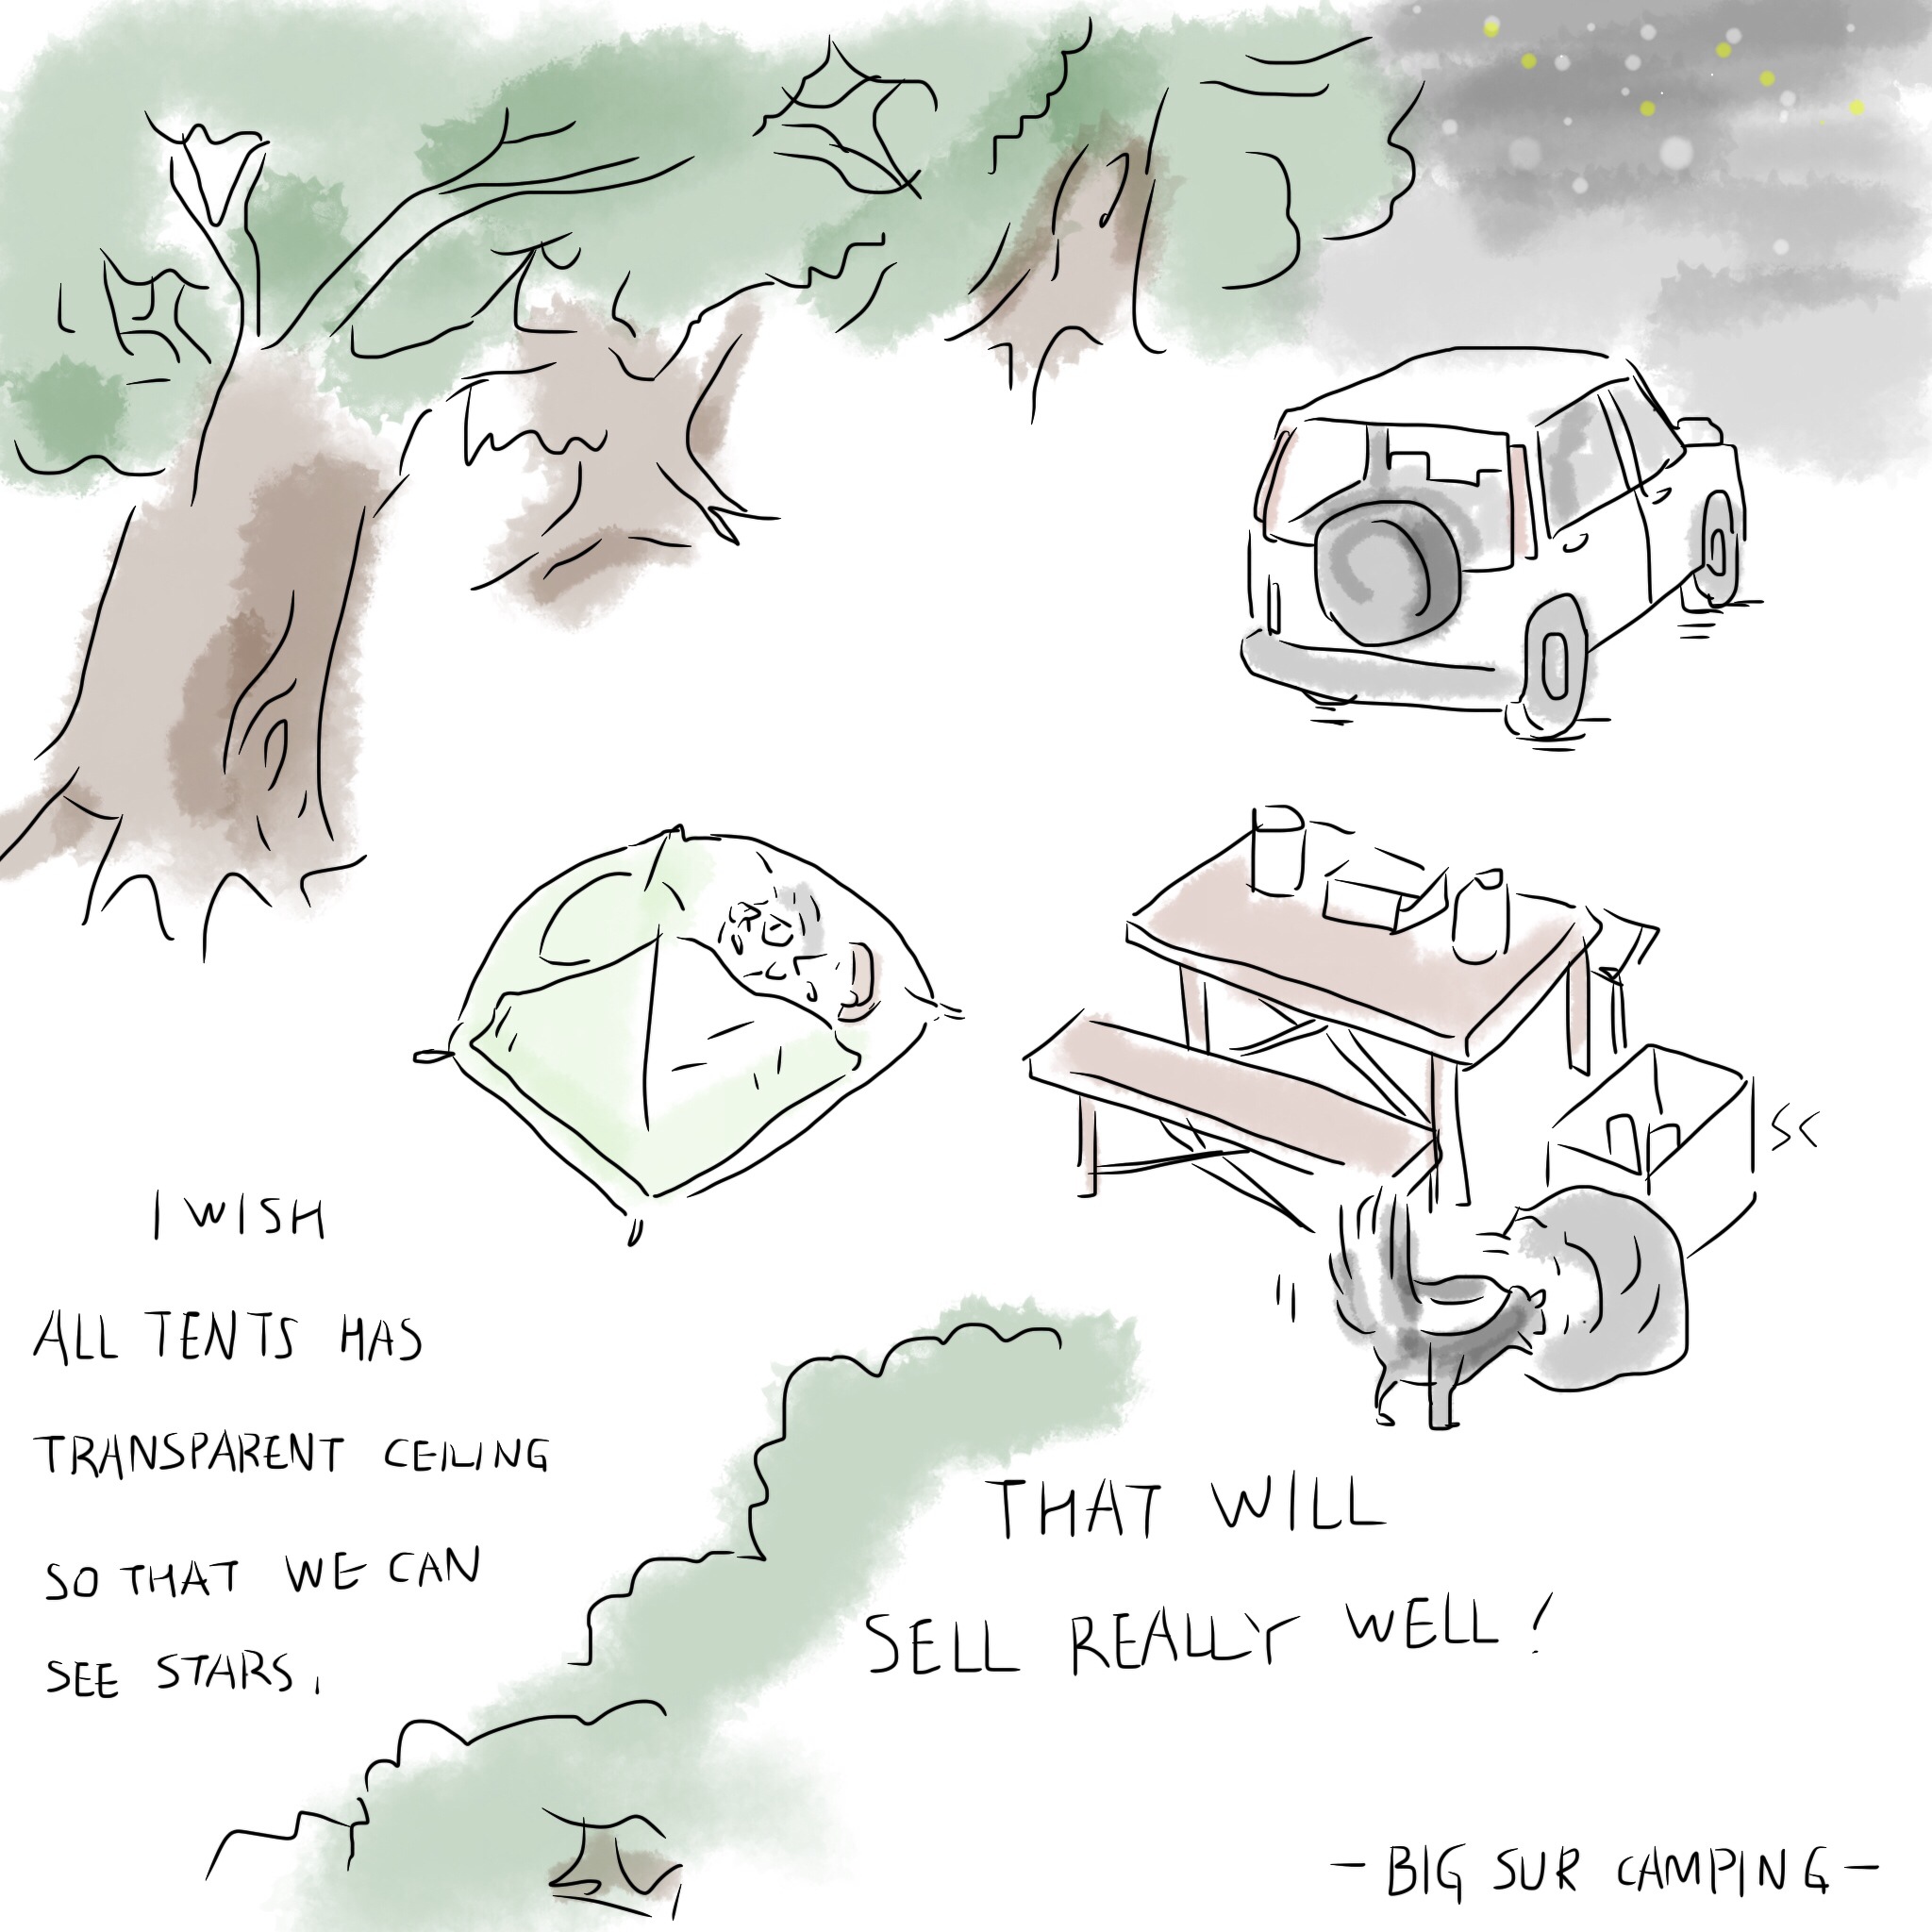 I WISH
ALL TENTS HAS
TRANSPARENT CEILING
SO THAT WE CAN
SEE STARS,
THAT WILL
SELL REALLY WELL!
- BIG SUR CAMPING -